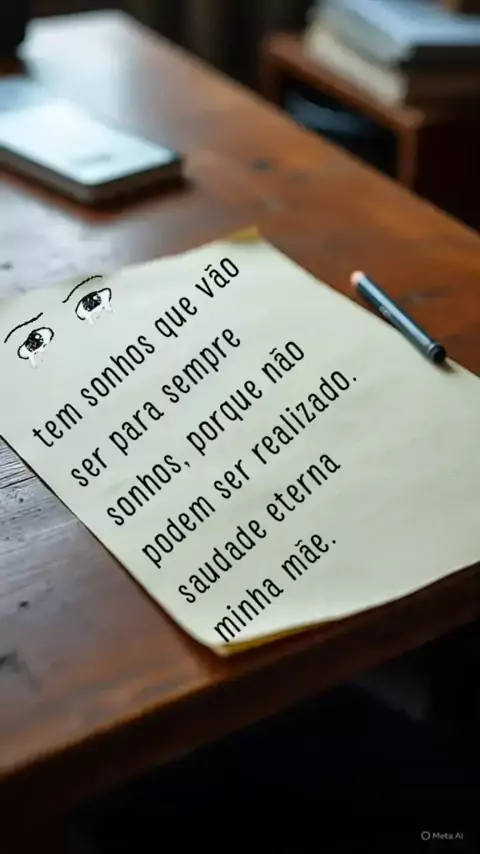 tem sonhos que vão
ser para sempre
sonhos, porque não
podem ser realizado.
saudade eterna
minha mãe.
Meta AI